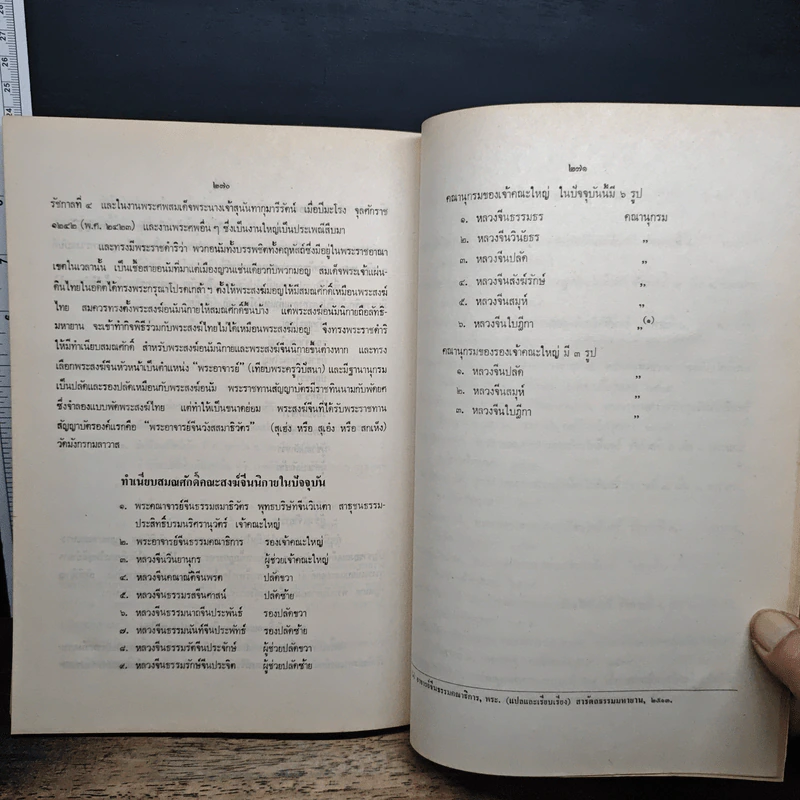 ๒๗๐
รัชกาลที่ ๔ และในงานพระศพสมเด็จพระนางเจ้าสุนันทากุมารีรัตน์ เมื่อปีมะโรง จุลศักราช
๑๒๔๒ (พ.ศ. ๒๔๒๓) และงานพระศพอื่น ๆ ซึ่งเป็นงานใหญ่เป็นประเพณีสืบมา
และทรงมีพระราชดำริว่า พวกอนัมทั้งบรรพชิตทั้งคฤหัสถ์ซึ่งมีอยู่ในพระราชอาณา
เขตในเวลานั้น เป็นเชื้อสายอนัมที่มาแต่เมืองญวนเช่นเดียวกับพวกมอญ สมเด็จพระเจ้าแผ่น-
ดินไทยในอดีตได้ทรงพระกรุณาโปรดเกล้า ๆ ตั้งให้พระสงฆ์มอญให้มีสมณศักดิ์เหมือนพระสงฆ์
ไทย สมควรทรงตั้งพระสงฆ์อนัมนิกายให้สมณศักดิ์ขึ้นบ้าง แต่พระสงฆ์อนัมนิกายถือลัทธิ-
มหายาน จะเข้าทำกิจพิธีร่วมกับพระสงฆ์ไทยไม่ได้เหมือนพระสงฆ์มอญ จึงทรงพระราชดำริ
ให้มีทำเนียบสมณศักดิ์ สำหรับพระสงฆ์อนัมนิกายและพระสงฆ์จีนนิกายขึ้นต่างหาก และทรง
เลือกพระสงฆ์จีนหัวหน้าเป็นตำแหน่ง "พระอาจารย์" (เทียบพระครูวิปัสนา) และมีฐานานุกรม
เป็นปลัดและรองปลัดเหมือนกับพระสงฆ์อนัม พระราชทานสัญญาบัตรมีราชทินนามกับพัดยศ
ซึ่งจำลองแบบพัดพระสงฆ์ไทย แต่ทำให้เป็นขนาดย่อม พระสงฆ์จีนที่ได้รับพระราชทาน
สัญญาบัตรองค์แรกคือ "พระอาจารย์จีนวังสสมาธิวัตร" (สุเฮ่ง หรือ สุเฮ็ง หรือ สกเห็ง)
วัดมังกรกมลาวาส
ทำเนียบสมณศักดิ์คณะสงฆ์จีนนิกายในปัจจุบัน
๑. พระคณาจารย์จีนธรรมสมาธิวัตร พุทธบริษัทจีนวิเนตา สาธุชนธรรม-
ประสิทธิ์บรมนริศรานุวัตร์ เจ้าคณะใหญ่
๒. พระอาจารย์จีนธรรมคณาธิการ รองเจ้าคณะใหญ่
๓. หลวงจีนวินยานุกร ผู้ช่วยเจ้าคณะใหญ่
๔. หลวงจีนคณาณัติจีนพรต ปลัดขวา
๕. หลวงจีนธรรมรสจีนศาสน์ ปลัดซ้าย
๖. หลวงจีนธรรมนาถจีนประพันธ์ รองปลัดขวา
๗. หลวงจีนธรรมนันท์จีนประพัทธ์ รองปลัดซ้าย
๘. หลวงจีนธรรมรัตจีนประจักษ์ ผู้ช่วยปลัดขวา
๙. หลวงจีนธรรมรักษ์จีนประจิต ผู้ช่วยปลัดซ้าย
๒๗๑
คณานุกรมของเจ้าคณะใหญ่ ในปัจจุบันนี้มี ๖ รูป
๑. หลวงจีนธรรมธร คณานุกรม
๒. หลวงจีนวินัยธร "
๓. หลวงจีนปลัด "
๔. หลวงจีนสังฆ์รักษ์ "
๕. หลวงจีนสมุห์ "
๖. หลวงจีนใบฎีกา "(๑)
คณานุกรมของรองเจ้าคณะใหญ่ มี ๓ รูป
๑. หลวงจีนปลัด "
๒. หลวงจีนสมุห์ "
๓. หลวงจีนใบฎีกา "
อาจารย์จีนธรรมคณาธิการ, พระ. (แปลและเรียบเรียง) สารัตถธรรมมหายาน, ๒๕๑๓.